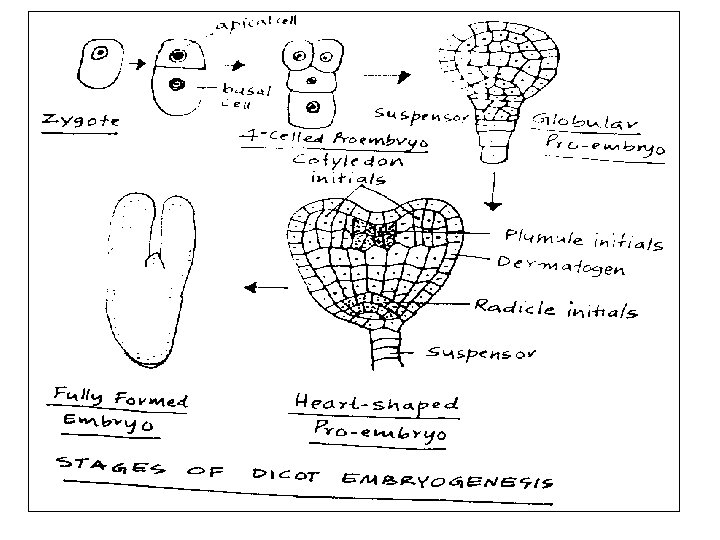 apical cell
basal
cell
Zygote
4-Celled Proembryo
Suspensor
Globular
Pro-embryo
Cotyledon
initials
Plumule initials
Dermatogen
Radicle initials
Suspensor
Fully Formed
Embryo
Heart-shaped
Pro-embryo
STAGES OF DICOT EMBRYOGENESIS